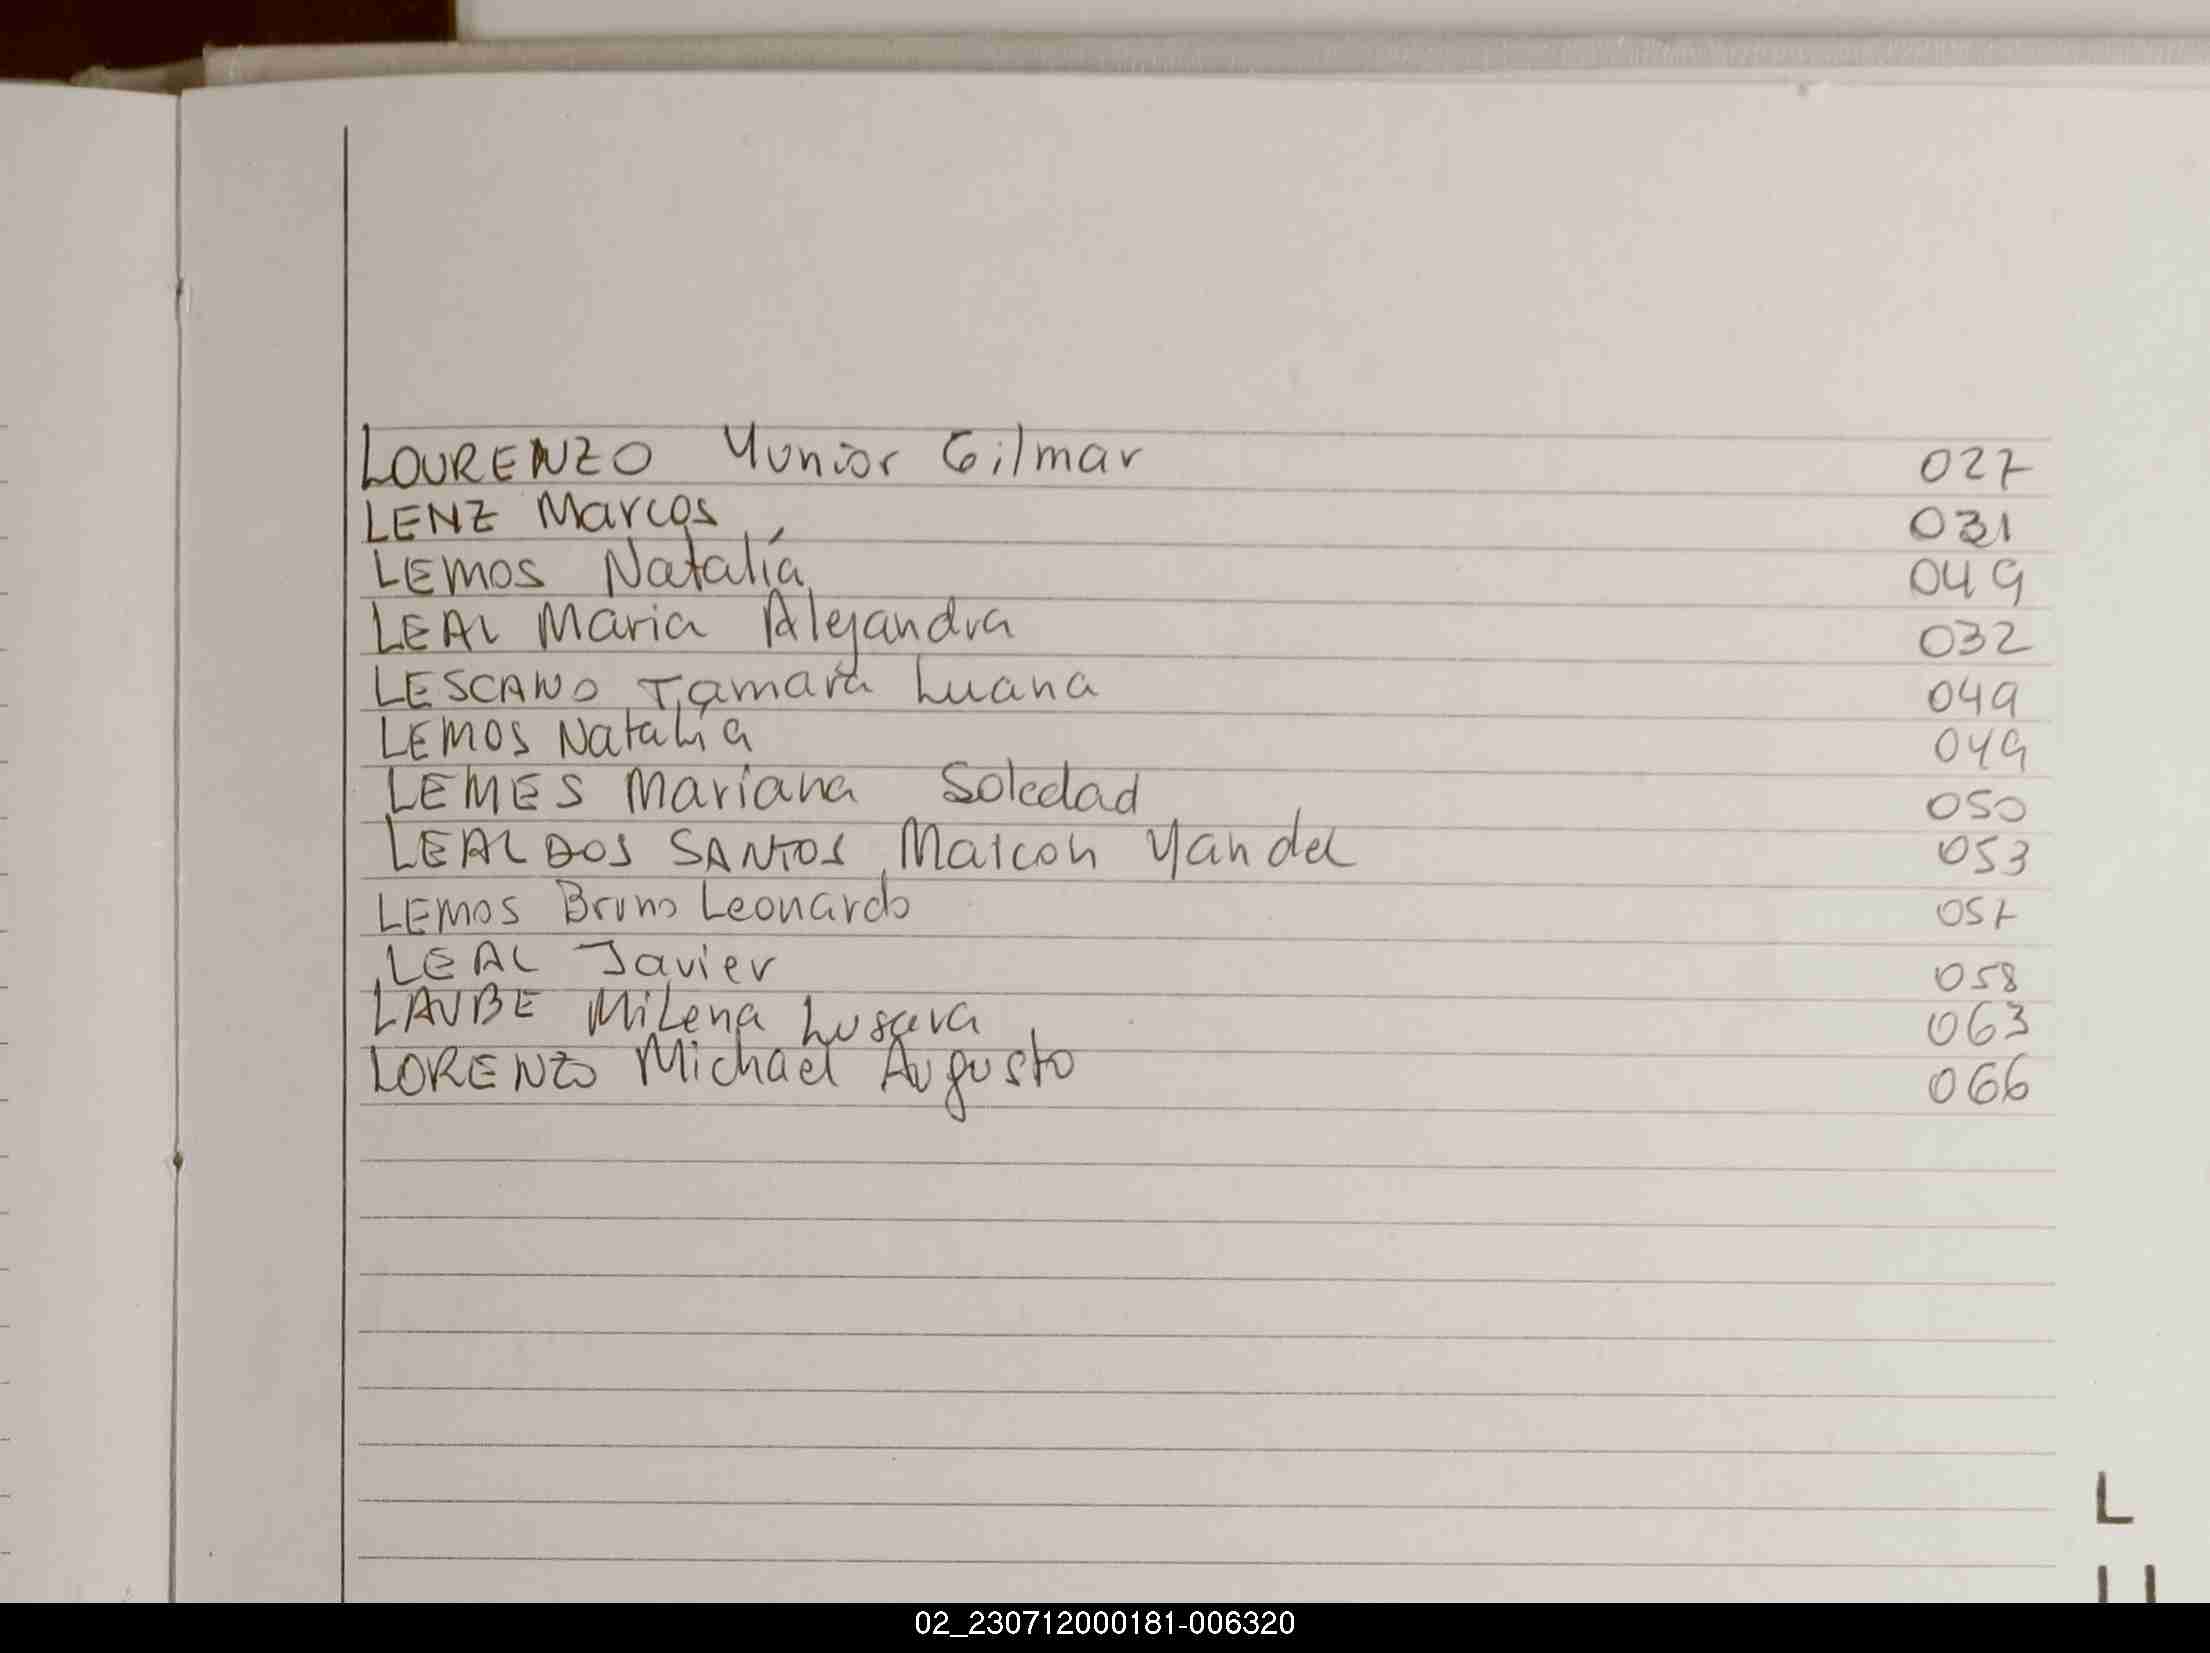 LOURENZO Yunior Gilmar 027
LENZ Marcos 031
LEMOS Natalía 049
LEAL Maria Alejandra 032
LESCANO Tamara Luana 049
LEMOS Natalia 049
LEMES Mariana Soledad 050
LEAL DOS SANTOS Maicon Yandel 053
LEMOS Bruno Leonardo 057
LEAL Javier 058
LAUBE Milena Lusava 063
LORENZO Michael Augusto 066
L
02_230712000181-006320